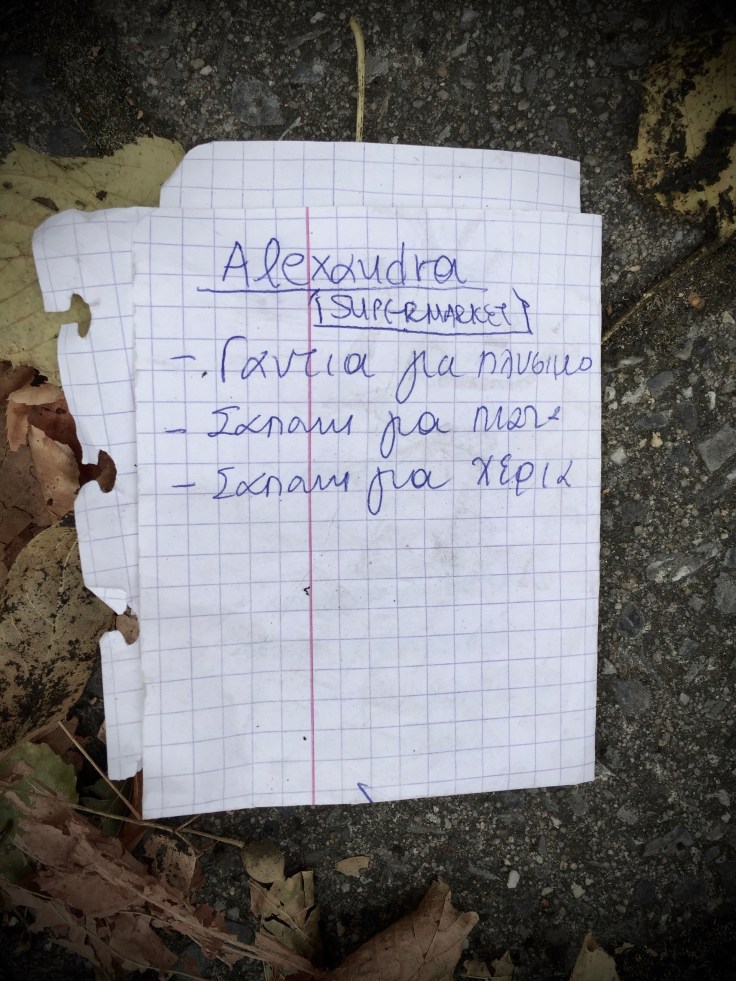 Alexandra
[SUPERMARKET]
- Γαντια για πλυσιμο
- Σαπουνι για πιατα
- Σαπουνι για χερια